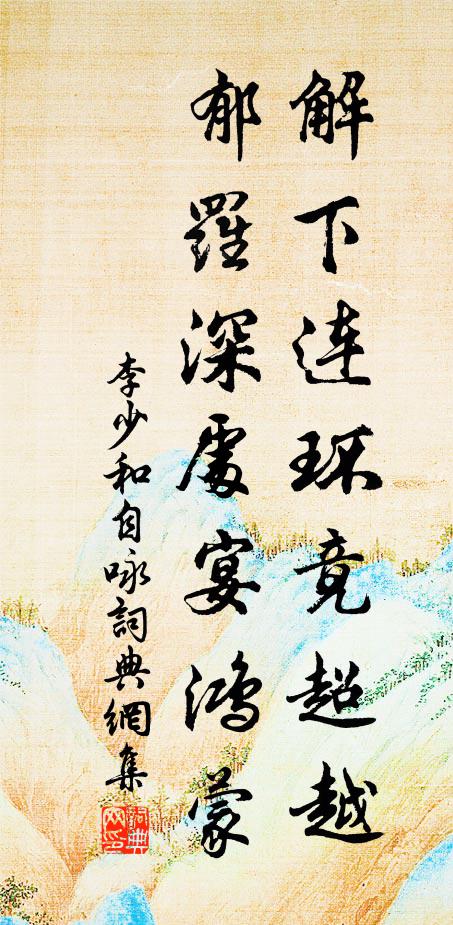 解下连环竟超越
郁罗深处宴鸿蒙
李少和自咏词典網集
詞典網印